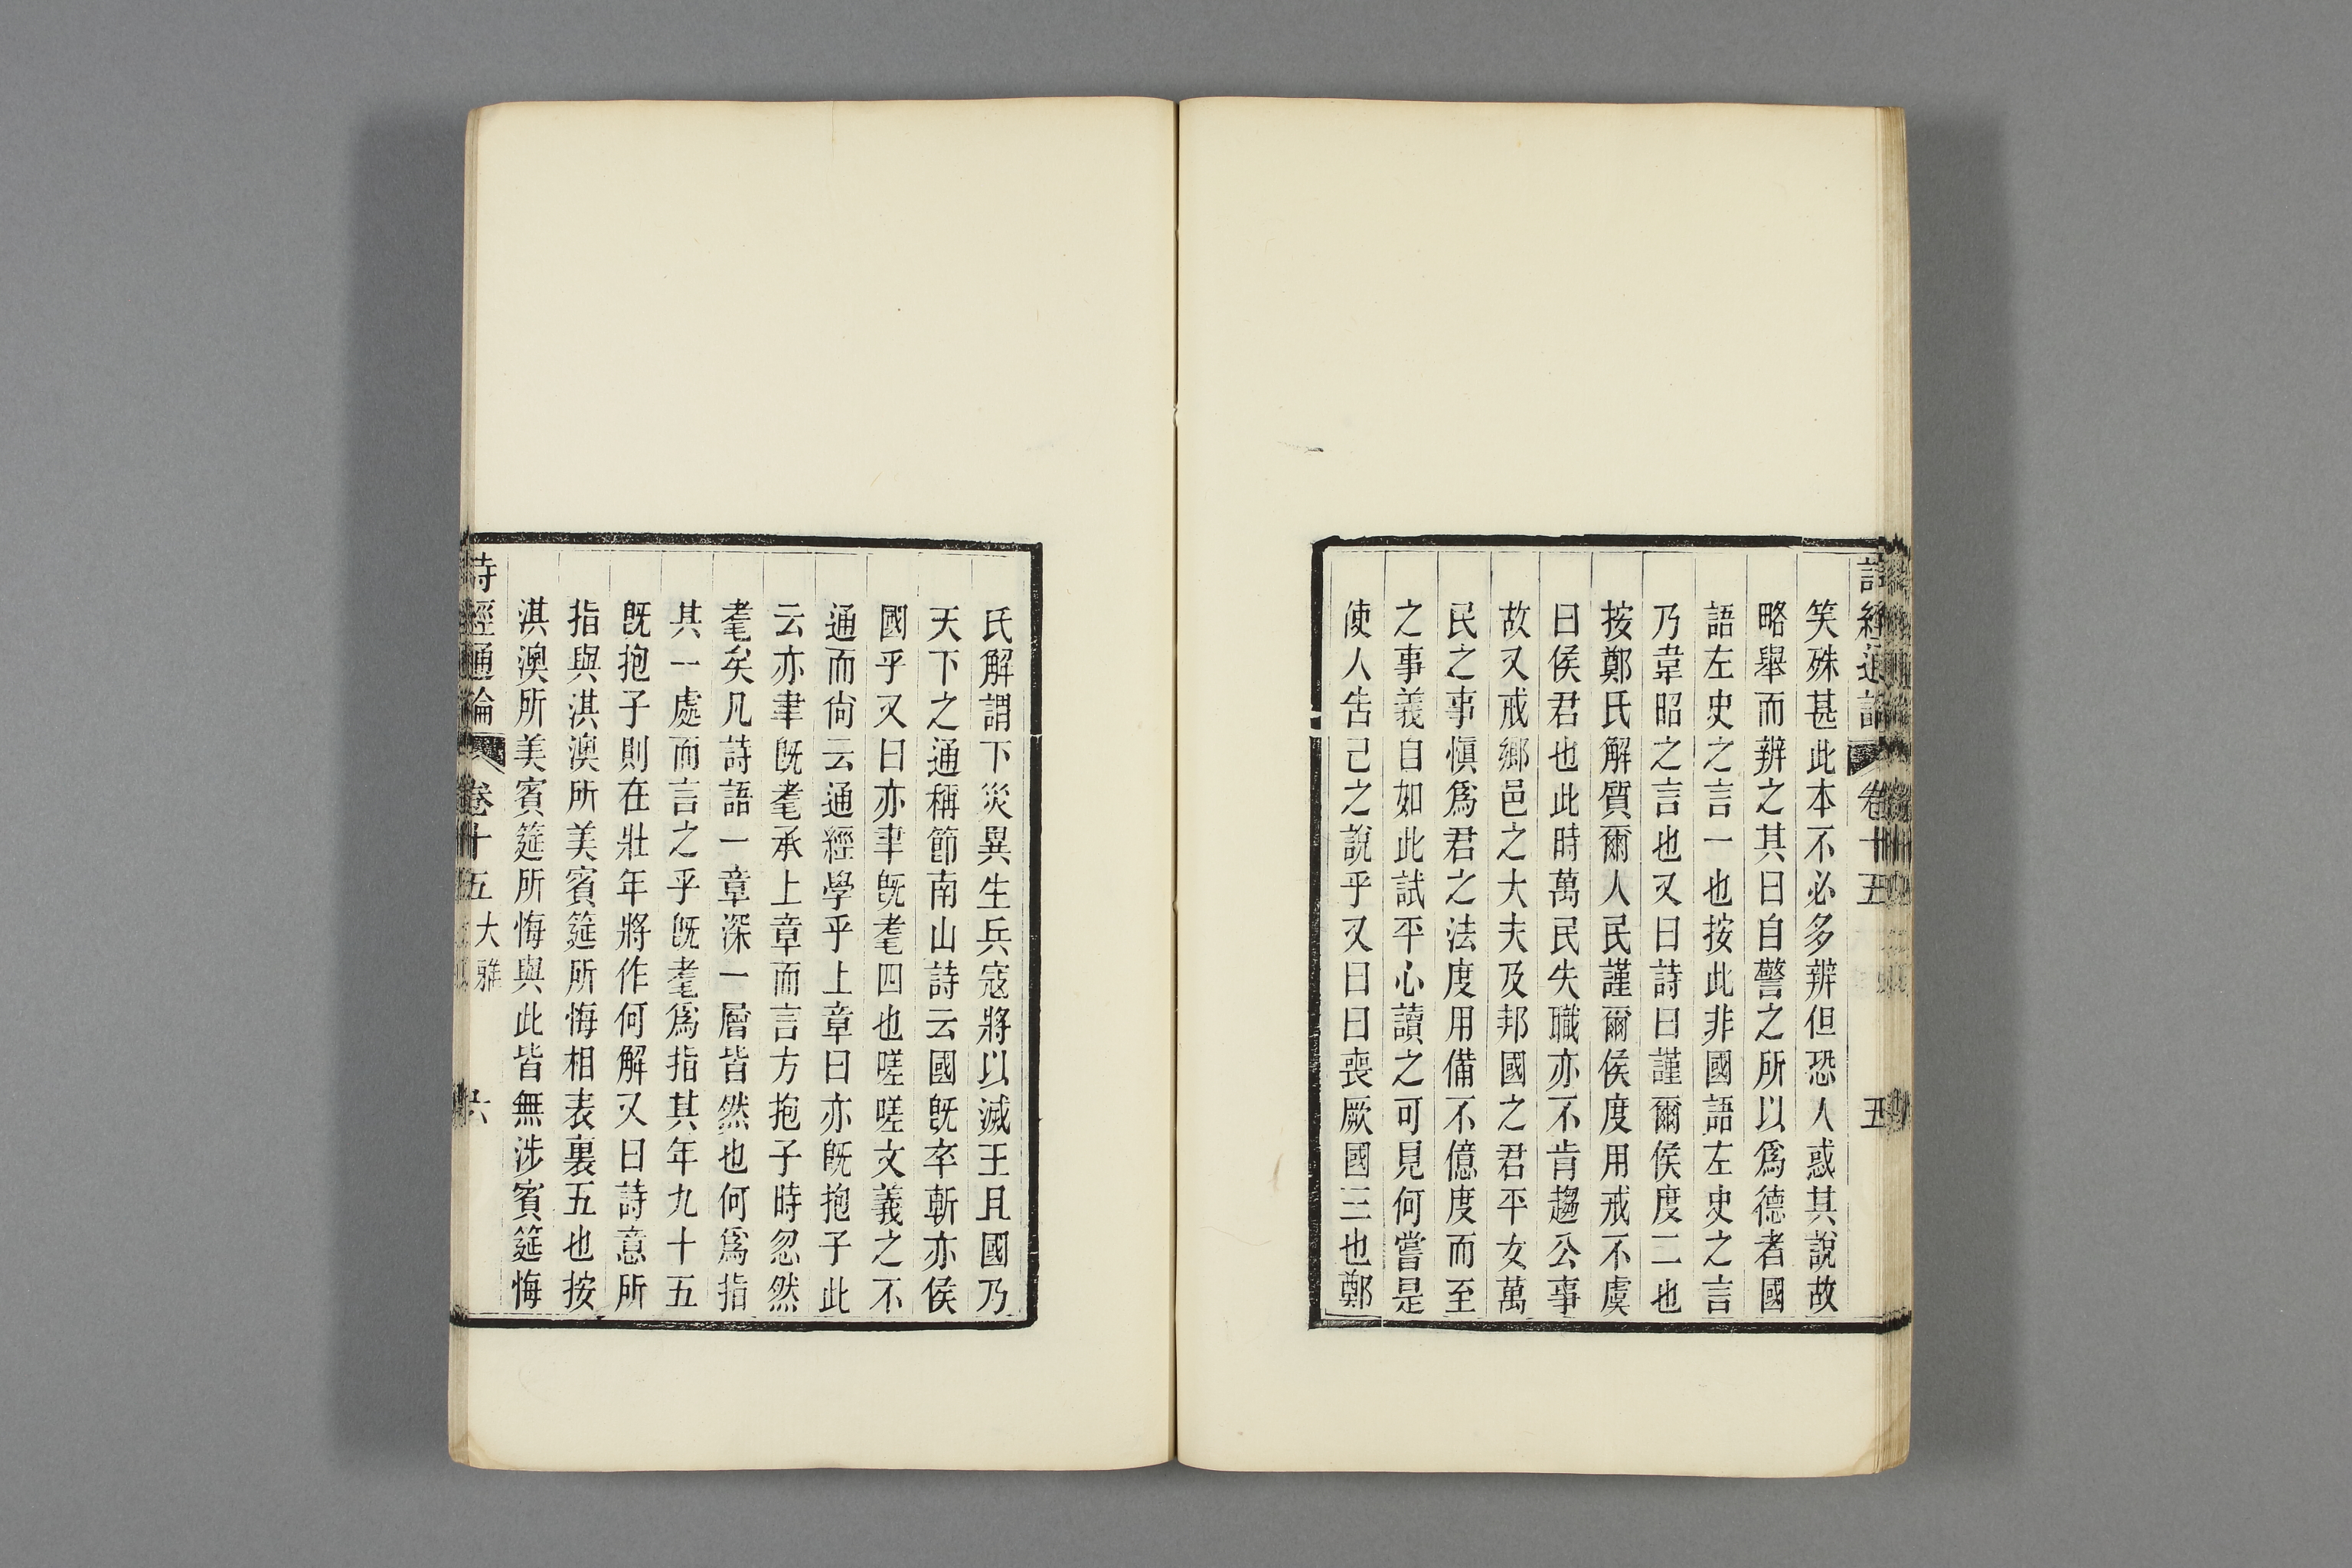 詩經通論 卷十五 五
笑殊甚此本不必多辨但恐人惑其說故
略舉而辨之其曰自警之所以爲德者國
語左史之言一也按此非國語左史之言
乃韋昭之言也又曰詩曰謹爾侯度二也
按鄭氏解質爾人民謹爾侯度用戒不虞
曰侯君也此時萬民失職亦不肯趨公事
故又戒鄉邑之大夫及邦國之君平女萬
民之事愼爲君之法度用備不億度而至
之事義自如此試平心讀之可見何嘗是
使人告己之說乎又曰曰喪厥國三也鄭
氏解謂下災異生兵寇將以滅王且國乃
天下之通稱節南山詩云國旣卒斬亦侯
國乎又曰亦聿旣耄四也嗟嗟文義之不
通而尙云通經學乎上章曰亦旣抱子此
云亦聿旣耄承上章而言方抱子時忽然
耄矣凡詩語一章深一層皆然也何爲指
其一處而言之乎旣耄爲指其年九十五
旣抱子則在壯年將作何解又曰詩意所
指與淇澳所美賓筵所悔相表裏五也按
淇澳所美賓筵所悔與此皆無涉賓筵悔
詩經通論 卷十五 大雅 六